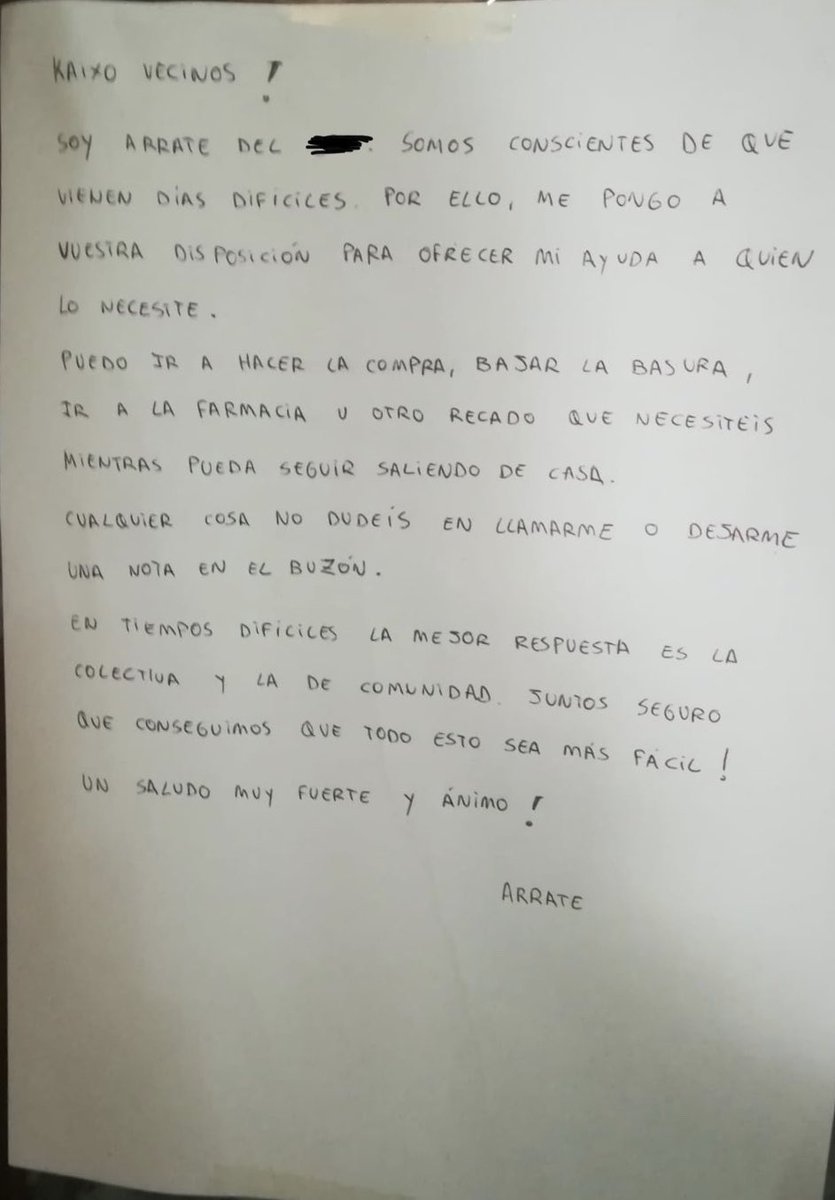 KAIXO VECINOS !
SOY ARRATE DEL . SOMOS CONSCIENTES DE QUE
VIENEN DÍAS DIFICILES. POR ELLO, ME PONGO A
VUESTRA DISPOSICIÓN PARA OFRECER MI AYUDA A QUIEN
LO NECESITE.
PUEDO IR A HACER LA COMPRA, BAJAR LA BASURA,
IR A LA FARMACIA U OTRO RECADO QUE NECESITEIS
MIENTRAS PUEDA SEGUIR SALIENDO DE CASA.
CUALQUIER COSA NO DUDEÍS EN LLAMARME O DEJARME
UNA NOTA EN EL BUZÓN.
EN TIEMPOS DIFICILES LA MEJOR RESPUESTA ES LA
COLECTIVA Y LA DE COMUNIDAD. JUNTOS SEGURO
QUE CONSEGUIMOS QUE TODO ESTO SEA MÁS FÁCIL !
UN SALUDO MUY FUERTE Y ÁNIMO !
ARRATE